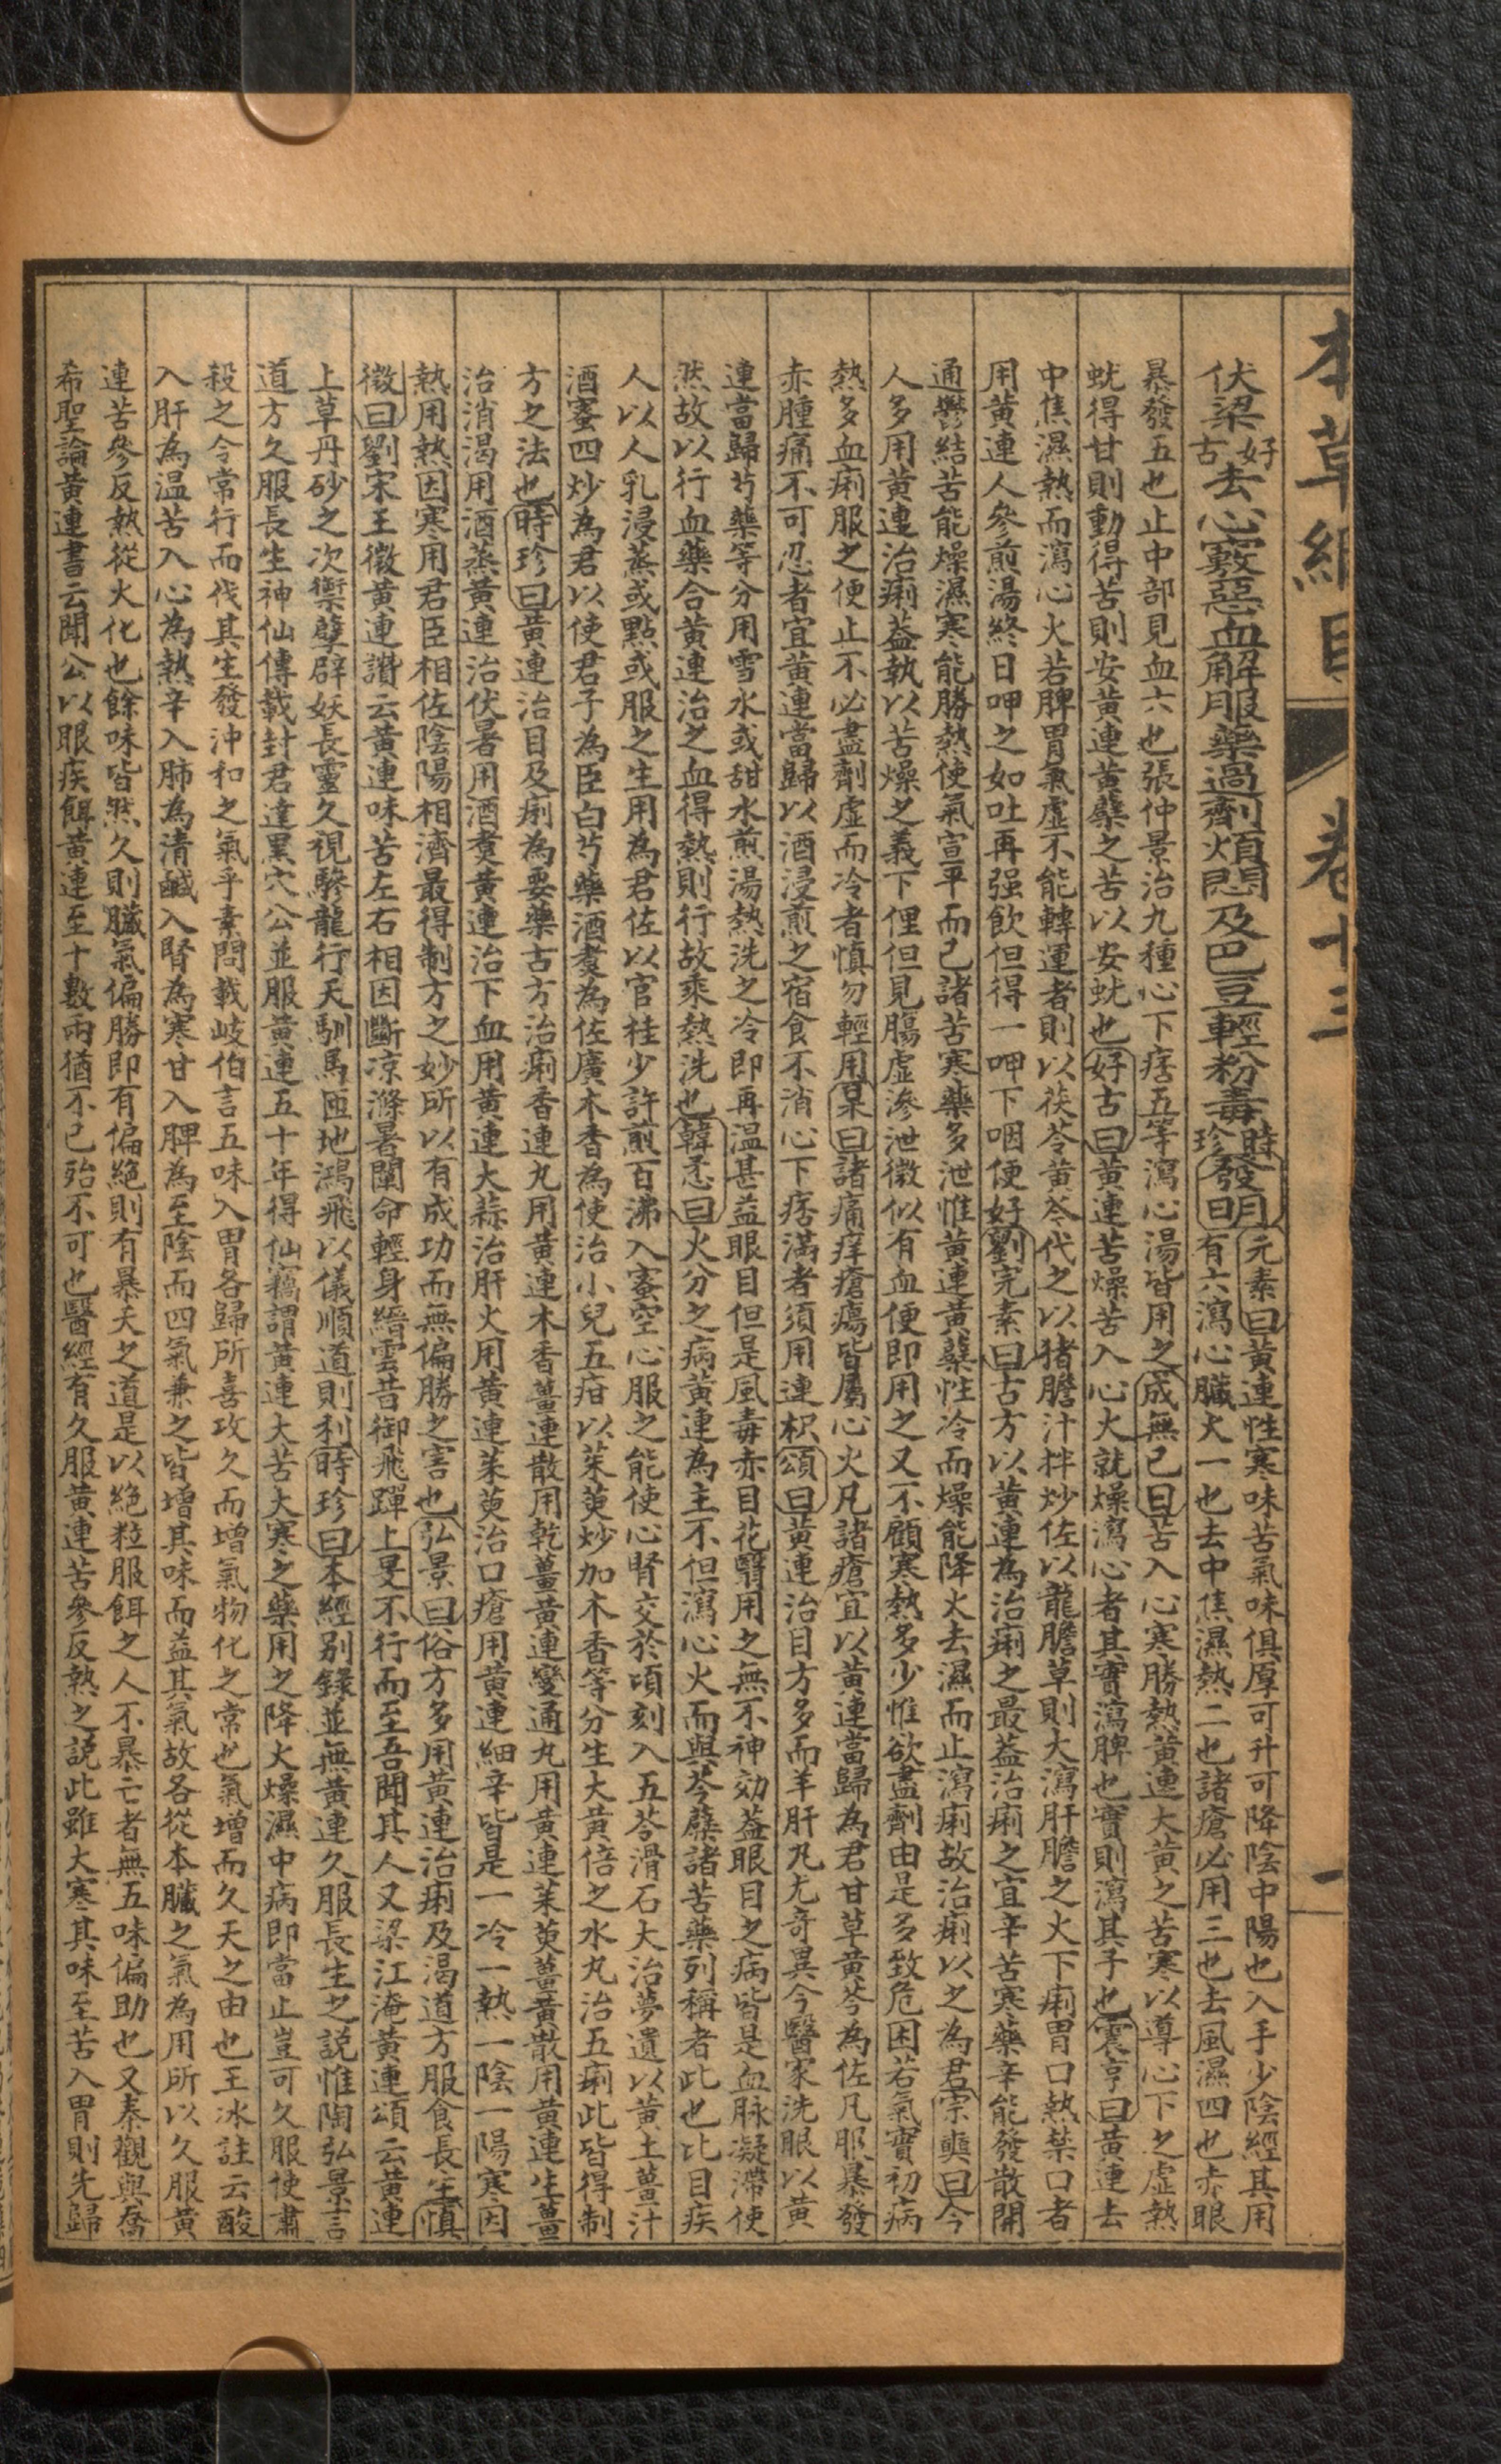 本草綱目 卷十三 一
伏梁好古去心竅惡血解服藥過劑煩悶及巴豆輕粉毒時珍發明元素曰黃連性寒味苦氣味俱厚可升可降陰中陽也入手少陰經其用
有六瀉心臟火一也去中焦濕熱二也諸瘡必用三也去風濕四也赤眼
暴發五也止中部見血六也張仲景治九種心下痞五等瀉心湯皆用之成無已曰苦入心寒勝熱黃連大黃之苦寒以導心下之虛熱
蚘得甘則動得苦則安黃連黃蘗之苦以安蚘也好古曰黃連苦燥苦入心火就燥瀉心者其實瀉脾也實則瀉其子也震亨曰黃連去
中焦濕熱而瀉心火若脾胃氣虛不能轉運者則以茯苓黃芩代之以猪膽汁拌炒佐以龍膽草則大瀉肝膽之火下痢胃口熱禁口者
用黃連人參煎湯終日呷之如吐再强飲但得一呷下咽便好劉完素曰古方以黃連為治痢之最葢治痢之宜辛苦寒藥辛能發散開
通鬱結苦能燥濕寒能勝熱使氣宣平而已諸苦寒藥多泄惟黃連黃蘗性冷而燥能降火去濕而止瀉痢故治痢以之為君宗奭曰今
人多用黃連治痢葢執以苦燥之義下俚但見腸虛滲泄微似有血便即用之又不顧寒熱多少惟欲盡劑由是多致危困若氣實初病
熱多血痢服之便止不必盡劑虛而冷者慎勿輕用杲曰諸痛痒瘡瘍皆屬心火凡諸瘡宜以黃連當歸為君甘草黃芩為佐凡眼暴發
赤腫痛不可忍者宜黃連當歸以酒浸煎之宿食不消心下痞滿者須用連枳頌曰黃連治目方多而羊肝丸尤奇異今醫家洗眼以黃
連當歸芍藥等分用雪水或甜水煎湯熱洗之冷即再溫甚益眼目但是風毒赤目花翳用之無不神効葢眼目之病皆是血脉凝滯使
然故以行血藥合黃連治之血得熱則行故乘熱洗也韓㦗曰火分之病黃連為主不但瀉心火而與芩蘗諸苦藥列稱者此也比目疾
人以人乳浸蒸或點或服之生用為君佐以官桂少許煎百沸入蜜空心服之能使心腎交於頃刻入五苓滑石大治夢遺以黃土薑汁
酒蜜四炒為君以使君子為臣白芍藥酒煑為佐廣木香為使治小兒五疳以茱萸炒加木香等分生大黃倍之水丸治五痢此皆得制
方之法也時珍曰黃連治目及痢為要藥古方治痢香連丸用黃連木香薑連散用乾薑黃連變通丸用黃連茱萸薑黃散用黃連生薑
治消渴用酒蒸黃連治伏暑用酒煑黃連治下血用黃連大蒜治肝火用黃連茱萸治口瘡用黃連細辛皆是一冷一熱一陰一陽寒因
熱用熱因寒用君臣相佐陰陽相濟最得制方之妙所以有成功而無偏勝之害也弘景曰俗方多用黃連治痢及渴道方服食長生慎
微曰劉宋王微黃連讚云黃連味苦左右相因斷凉滌暑闡命輕身縉雲昔御飛蹕上旻不行而至吾聞其人又梁江淹黃連頌云黃連
上草丹砂之次禦孽辟妖長靈久視驂龍行天馴馬匝地鴻飛以儀順道則利時珍曰本經别錄並無黃連久服長生之說惟陶弘景言
道方久服長生神仙傳載封君達黑穴公並服黃連五十年得仙竊謂黃連大苦大寒之藥用之降火燥濕中病即當止豈可久服使肅
殺之令常行而伐其生發沖和之氣乎素問載岐伯言五味入胃各歸所喜攻久而增氣物化之常也氣增而久夭之由也王冰註云酸
入肝為温苦入心為熱辛入肺為清鹹入腎為寒甘入脾為至陰而四氣兼之皆增其味而益其氣故各從本臟之氣為用所以久服黃
連苦參反熱從火化也餘味皆然久則臟氣偏勝即有偏絕則有暴夭之道是以絶粒服餌之人不暴亡者無五味偏助也又秦觀與喬
希聖論黃連書云聞公以眼疾餌黃連至十數兩猶不已殆不可也醫經有久服黃連苦參反熱之說此雖大寒其味至苦入胃則先歸